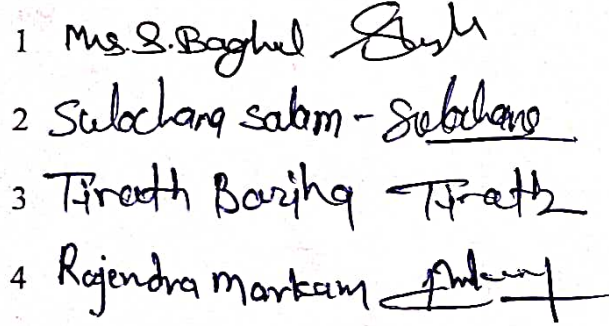 1 Mrs. S. Baghel
2 Sulochana Salam - Sulochana
3 Tirath Bariha Tirath
4 Rajendra Markam